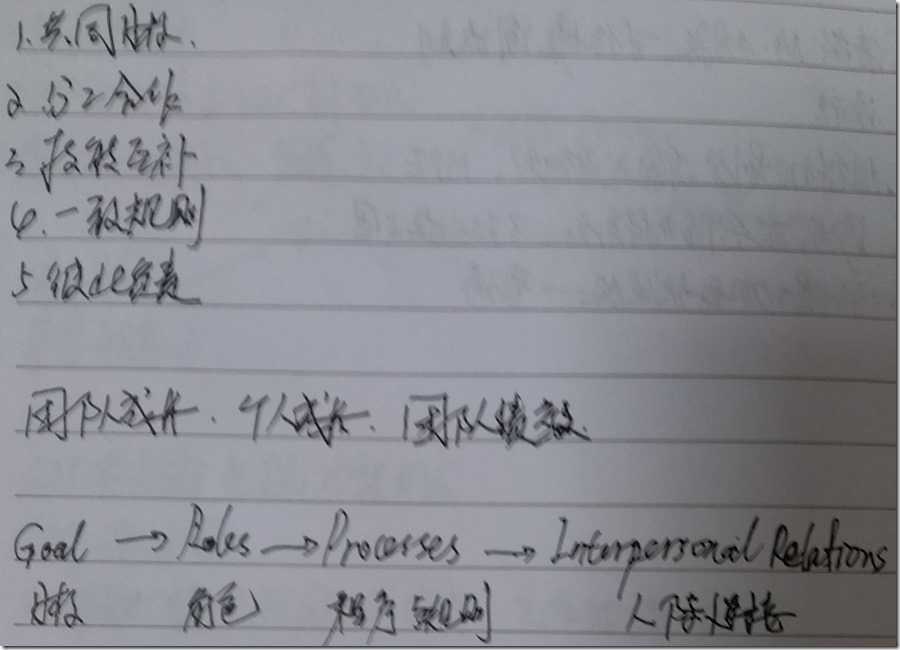 1.共同目标.
2 分工合作
3.技能互补
4.一致规则
5 彼此负责
团队成长. 个人成长. 团队绩效.
Goal → Roles → Processes → Interpersonal Relations
目标 角色 程序规则 人际